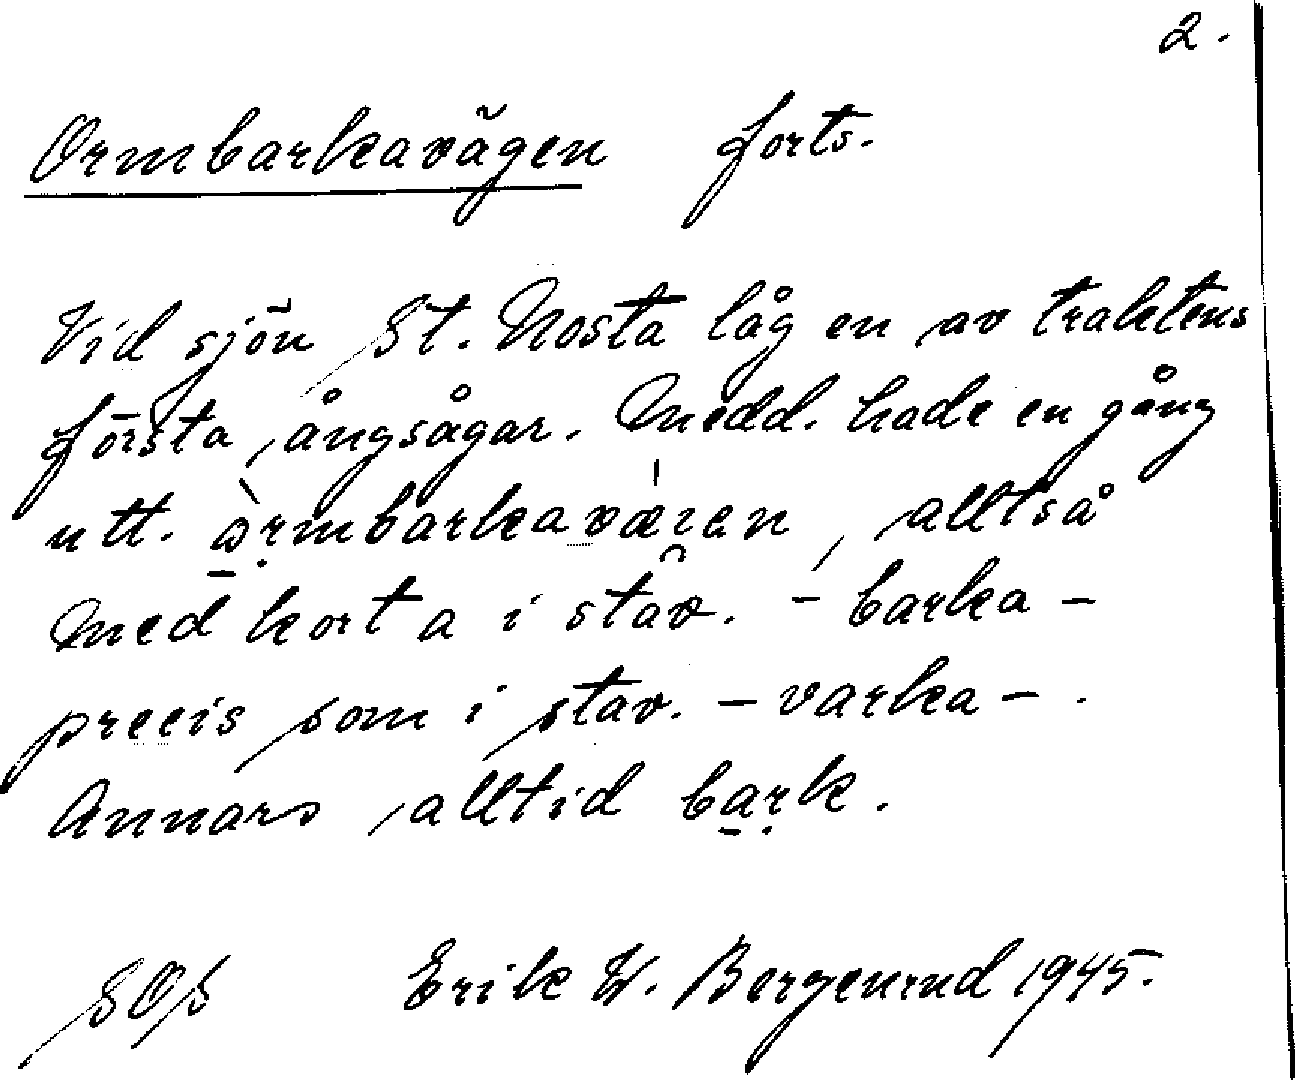 2.
Ormbarkavägen forts.
Vid sjön St. Nosta låg en av traktens
första ångsågar. Medd. hade en gång
utt. òrmbarkavæ̀ıen, alltså
med kort a i stav. - barka -
precis som i stav. - varka - .
Annars alltid bark.
SOS Erik W. Bergenrud 1945.